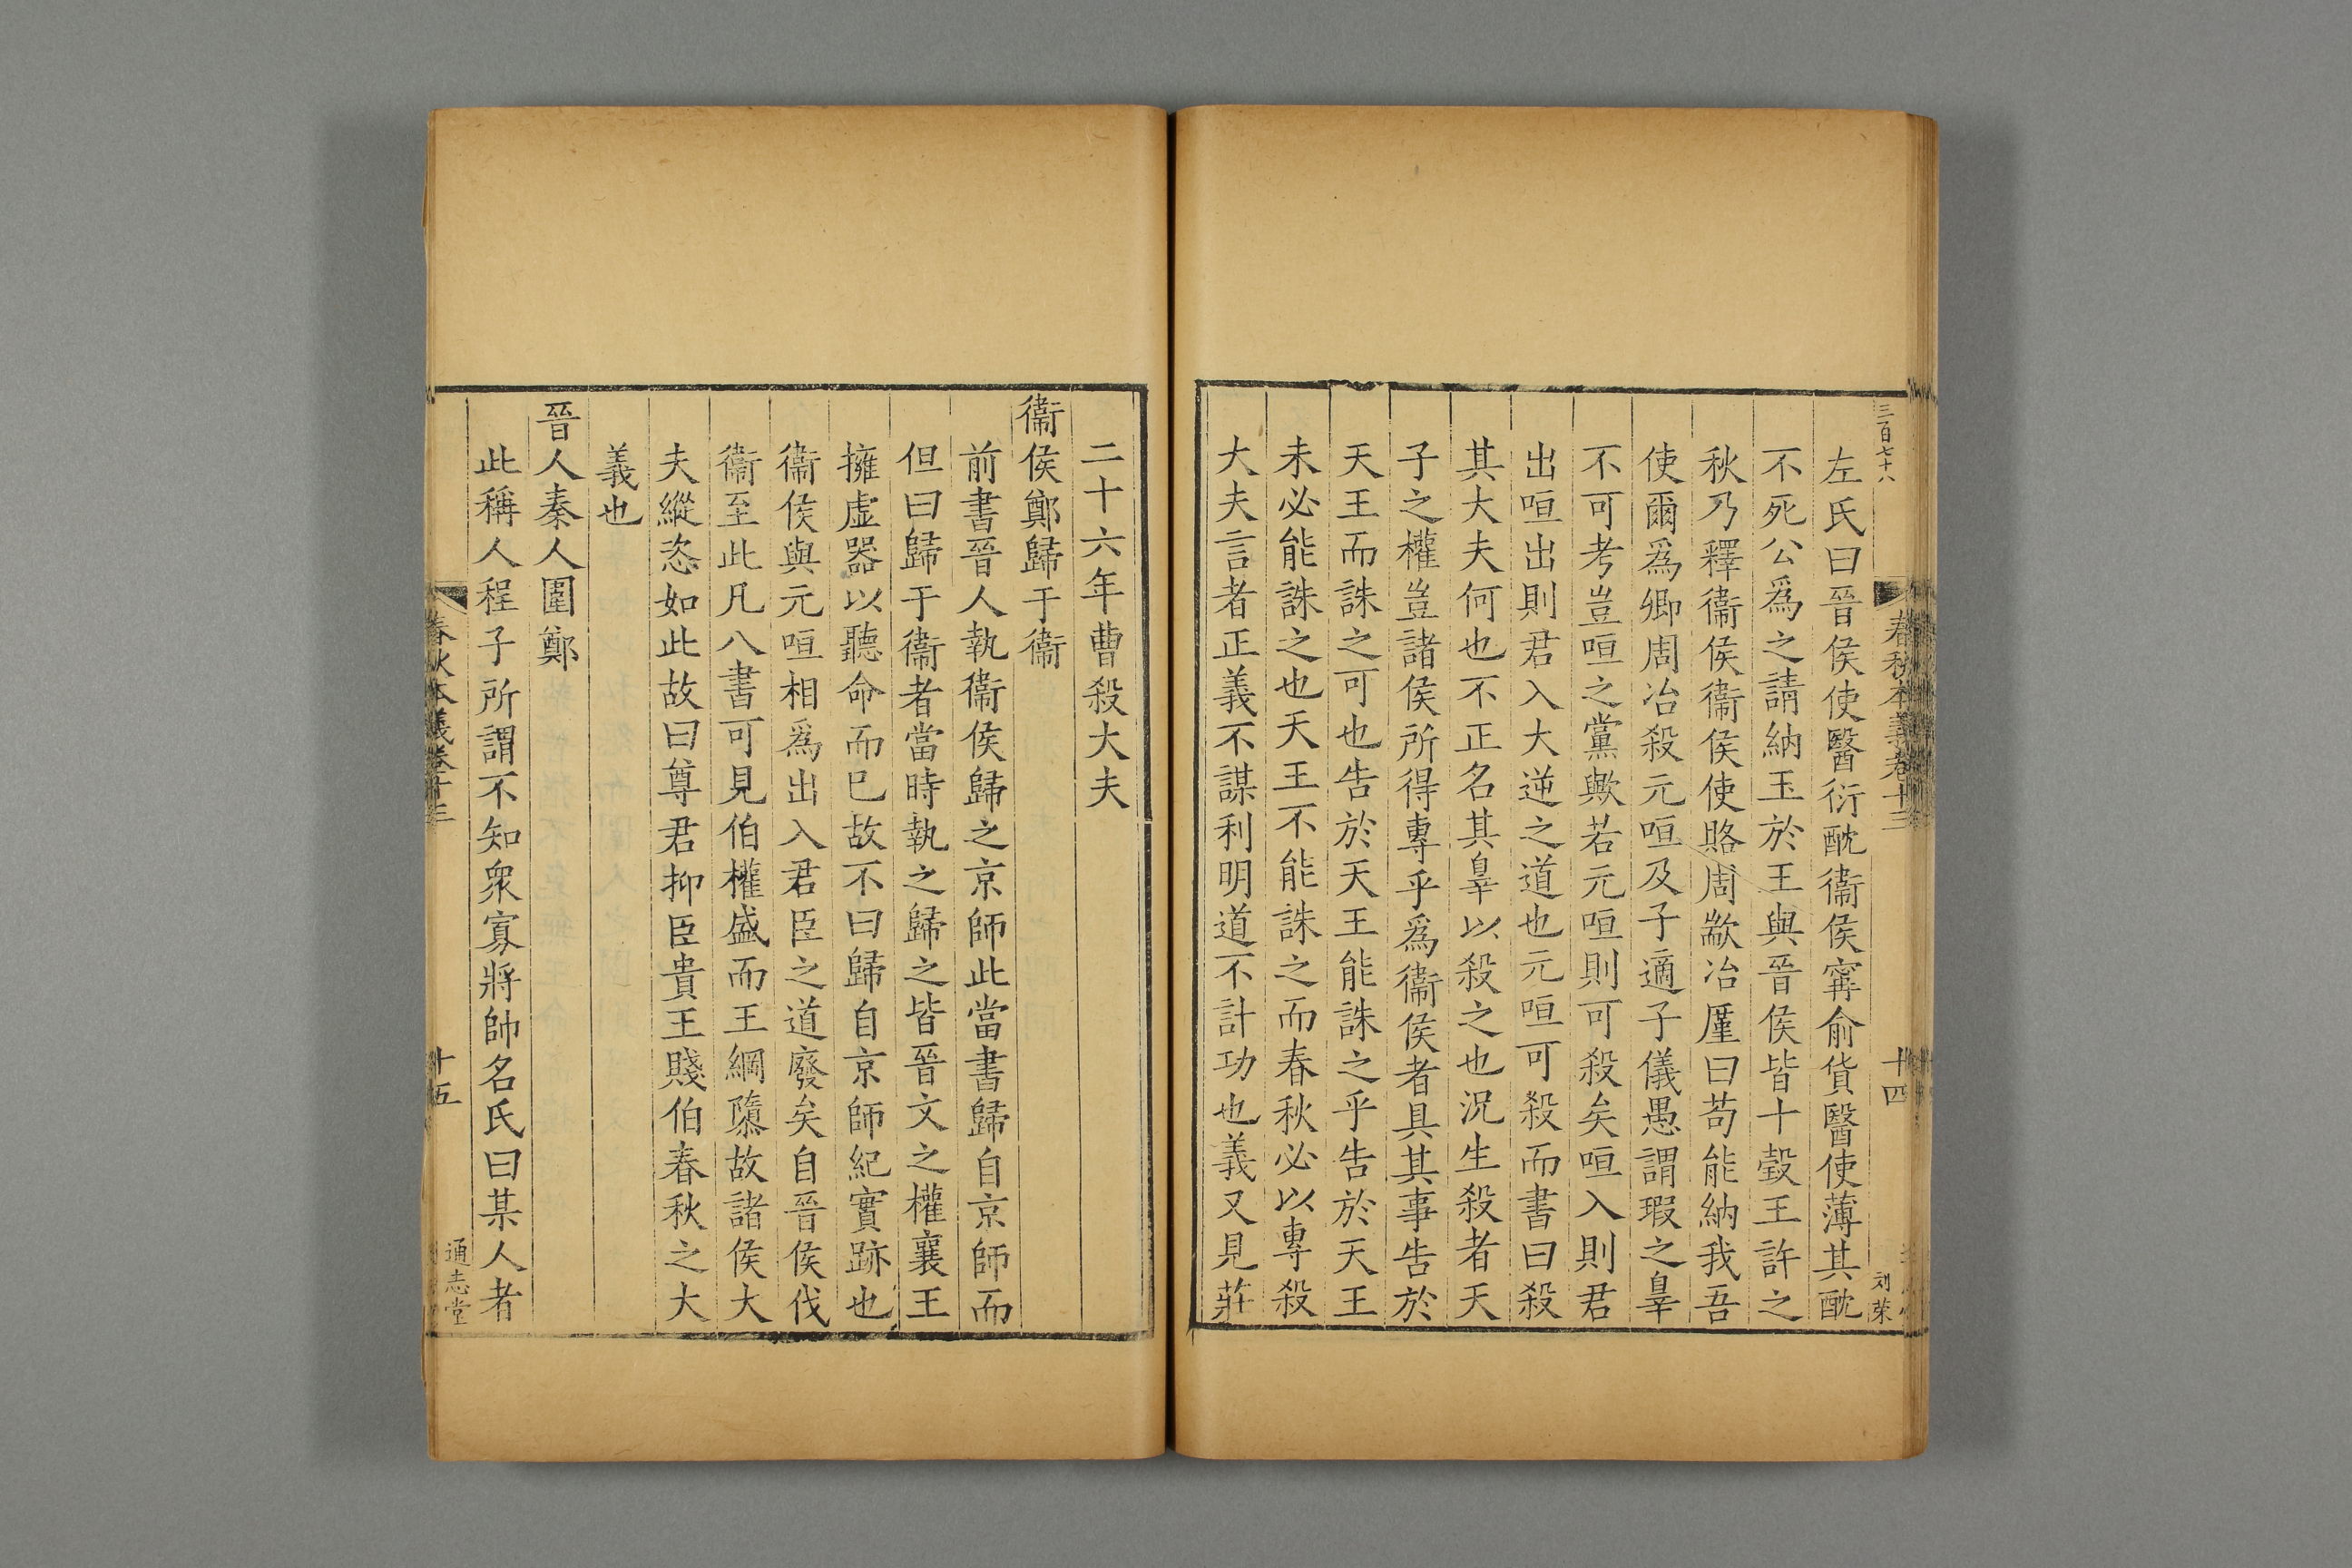 三百七十八
春秋本義卷十三
十四
刘荣
左氏曰晉侯使醫衍酖衞侯寗俞貨醫使薄其酖
不死公爲之請納玉於王與晉侯皆十瑴王許之
秋乃釋衞侯衞侯使賂周歂冶廑曰苟能納我吾
使爾爲卿周冶殺元咺及子適子儀愚謂瑕之辠
不可考豈咺之黨歟若元咺則可殺矣咺入則君
出咺出則君入大逆之道也元咺可殺而書曰殺
其大夫何也不正名其辠以殺之也況生殺者天
子之權豈諸侯所得專乎爲衞侯者具其事告於
天王而誅之可也告於天王能誅之乎告於天王
未必能誅之也天王不能誅之而春秋必以專殺
大夫言者正義不謀利明道不計功也義又見莊
二十六年曹殺大夫
衞侯鄭歸于衞
前書晉人執衞侯歸之京師此當書歸自京師而
但曰歸于衞者當時執之歸之皆晉文之權襄王
擁虛器以聽命而巳故不曰歸自京師紀實跡也
衞侯與元咺相爲出入君臣之道廢矣自晉侯伐
衞至此凡八書可見伯權盛而王綱隳故諸侯大
夫縱恣如此故曰尊君抑臣貴王賤伯春秋之大
義也
晉人秦人圍鄭
此稱人程子所謂不知衆寡將帥名氏曰某人者
春秋本義卷十三
十五
通志堂